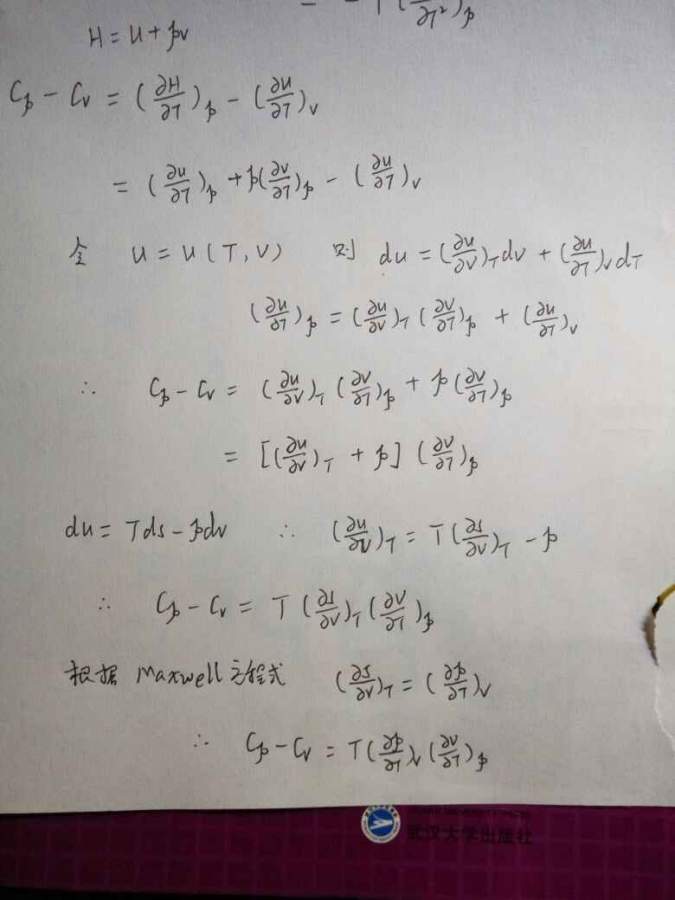 (∂T²)ₚ
H = U + pv
Cp - Cv = (∂H/∂T)p - (∂u/∂T)v
= (∂u/∂T)p + p(∂v/∂T)p - (∂u/∂T)v
令 u = u(T, V) 则 du = (∂u/∂V)T dv + (∂u/∂T)v dT
(∂u/∂T)p = (∂u/∂v)T (∂V/∂T)p + (∂u/∂T)v
∴ Cp - Cv = (∂u/∂v)T (∂V/∂T)p + p(∂V/∂T)p
= [(∂u/∂v)T + p] (∂V/∂T)p
du = Tds - pdv ∴ (∂u/∂V)T = T(∂s/∂V)T - p
∴ Cp - Cv = T(∂s/∂V)T (∂V/∂T)p
根据 Maxwell 方程式 (∂S/∂V)T = (∂p/∂T)V
∴ Cp - Cv = T(∂p/∂T)V (∂V/∂T)p
武汉大学出版社